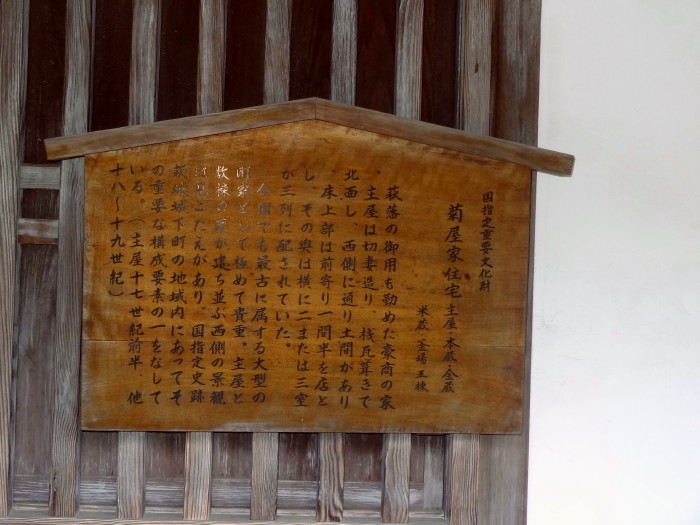 国指定重要文化財
菊屋家住宅 主屋・本蔵・金蔵
米蔵・釜場 五棟
萩藩の御用も勤めた豪商の家
。主屋は切妻造り、桟瓦葺きで
北面し、西側に通り土間があり
、床上部は前寄り一間半を店と
し、その奥は横に二または三室
が三列に配されていた。
全国でも最古に属する大型の
町家として極めて貴重。主屋と
数棟の蔵が建ち並ぶ西側の景観
は見ごたえがあり、国指定史跡
萩城城下町の地域内にあってそ
の重要な構成要素の一をなして
いる。(主屋十七世紀前半、他
十八〜十九世紀)